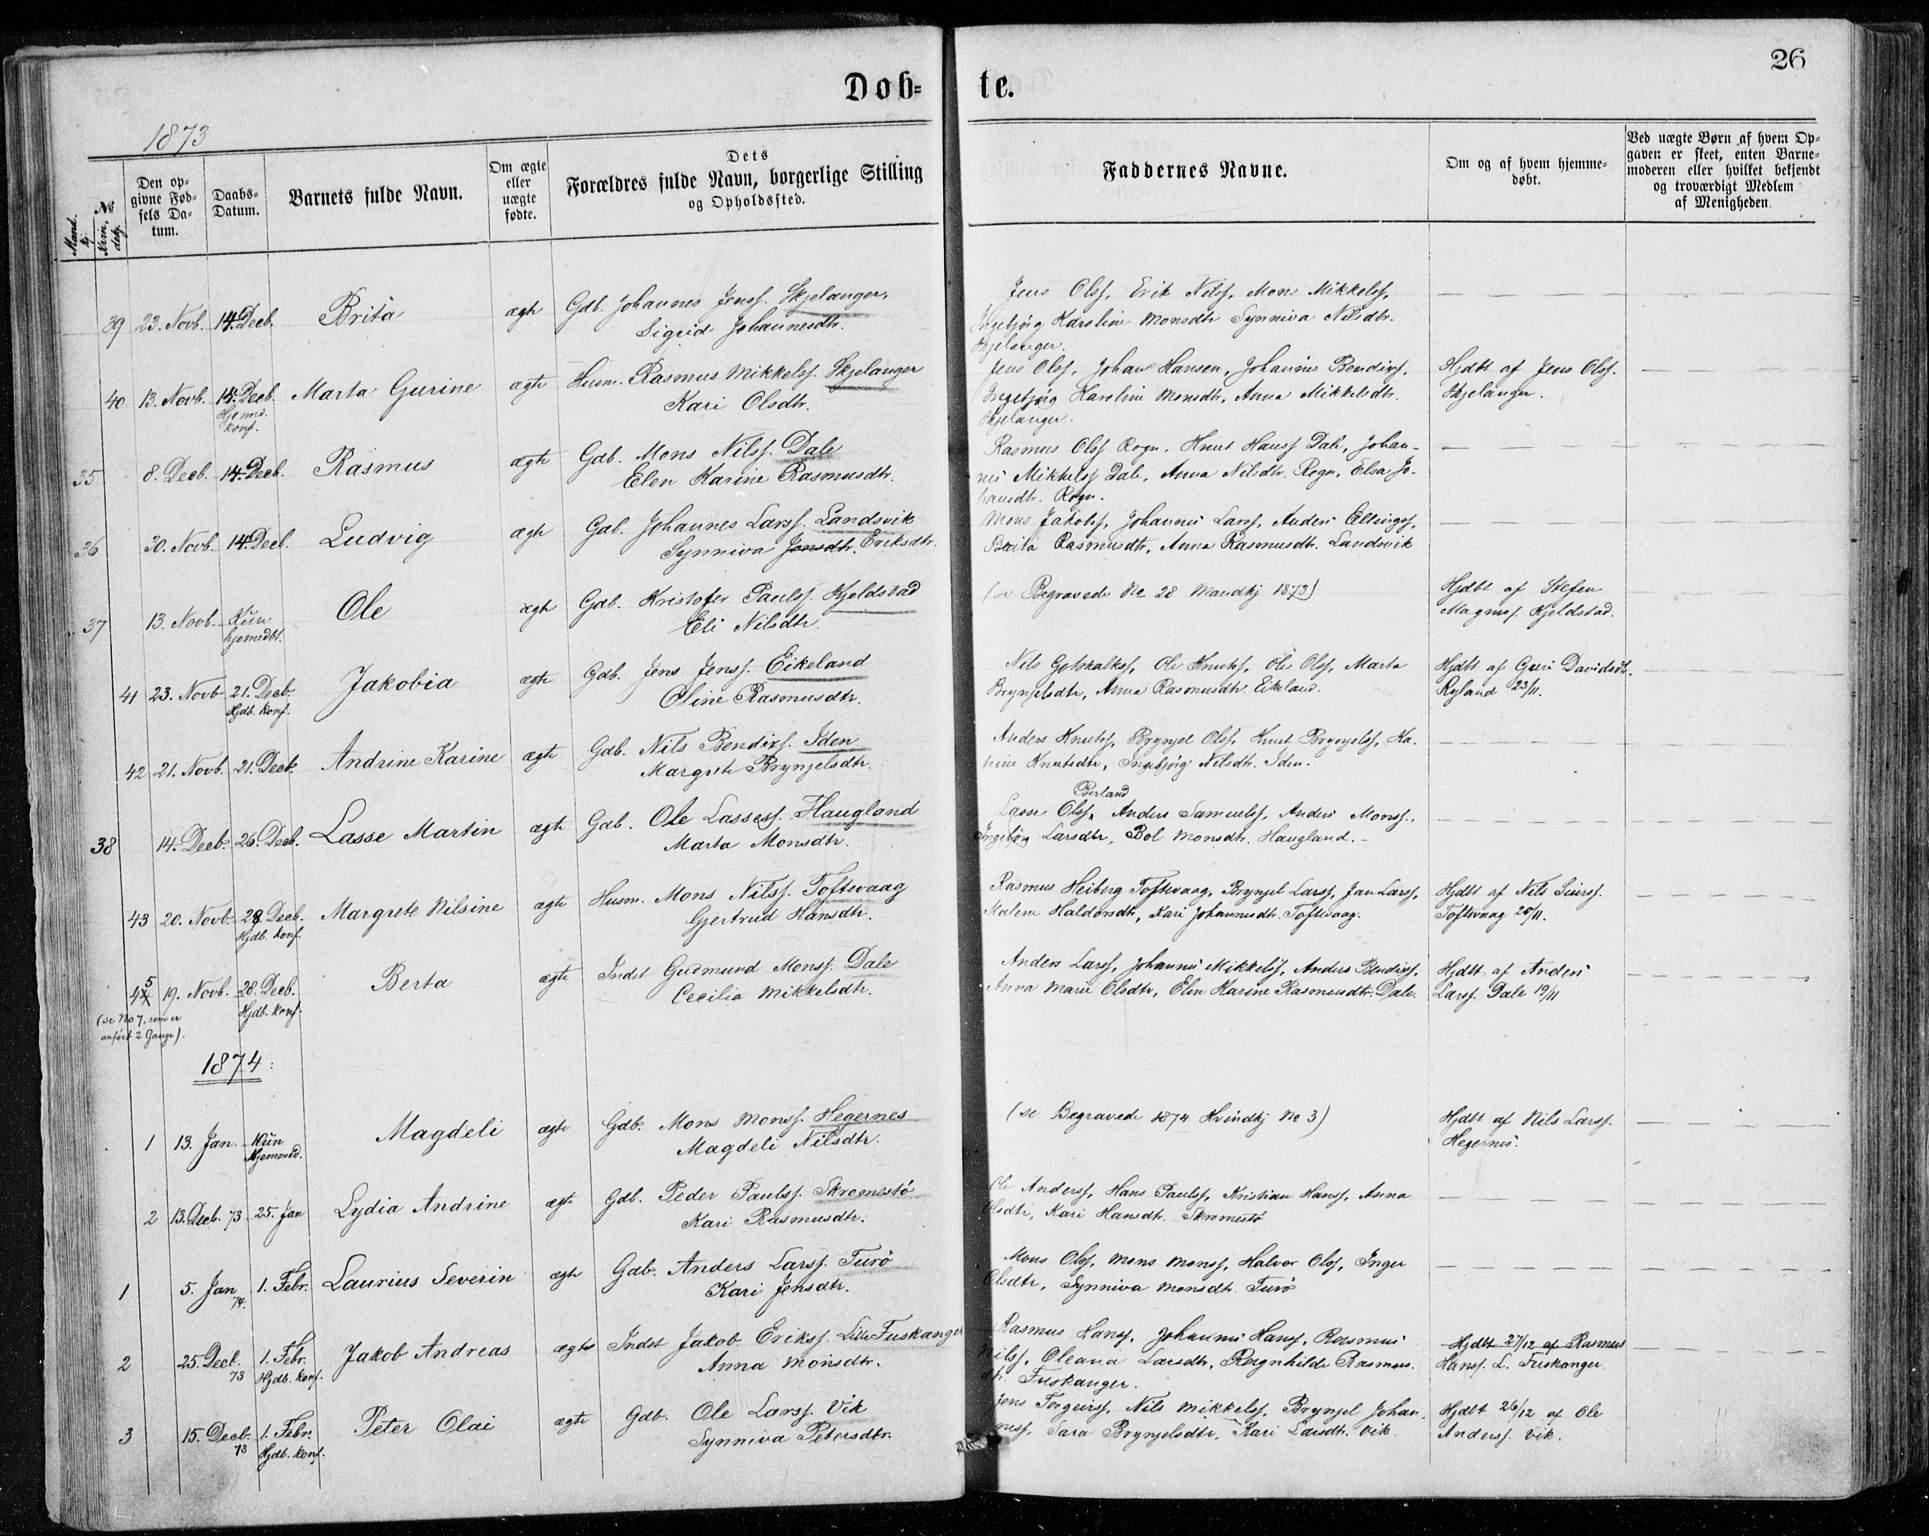 26
Døb-te.
1873
Mand-kj. No Kvin-dekj.
Den op-
givne Fød-
sels Da-
tum.
Daabs-
Datum.
Barnets fulde Navn.
Om ægte
eller
uægte
fødte.
Dets
Forældres fulde Navn, borgerlige Stilling
og Opholdssted.
Faddernes Navne.
Om og af hvem hjemme-
døbt.
Ved uægte Børn af hvem Op-
gaven er skeet, enten Barne-
moderen eller hvilket bekjendt
og troværdigt Medlem
af Menigheden.
39 23. Novb. 14. Decb. Brita ægte Gdb. Johannes Jenss. Skjelanger,
Sigrid Johannesdtr.
Jens Olss, Erik Nilss, Mons Mikkelss,
Ingebjørg Karoline Monsdtr Synniva Nilsdtr.
Skjelanger.
40 13. Novb. 14. Decb. Marta Gurine ægte Husm. Rasmus Mikkelss. Skjelanger
Hjemd. konf.
Kari Olsdtr.
Jens Olss, Johan Hansen, Johannes Bendixs,
Ingebjørg Karoline Monsdtr, Anna Mikkelsdtr.
Skjelanger.
Hjdbt af Jens Olss.
Skjelanger.
35 8. Decb. 14. Decb. Rasmus ægte Gdb. Mons Nilss. Dale
Elen Karine Rasmusdtr.
Rasmus Olss Rogn, Knut Hanss Dale, Johan-
nes Mikkelss Dale, Anna Nilsdtr. Rogn, Elsa Jo-
hansdtr. Rogn.
36 30. Novb. 14. Decb. Ludvig ægte Gdb. Johannes Larss. Landsvik
Synniva Jonsdtr. Eriksdtr.
Mons Jakobss, Johannes Larss, Anders Ellingss,
Brita Rasmusdtr, Anna Rasmusdtr. Landsvik
37 13. Novb. Kun
hjemedbt. Ole ægte Gdb. Kristofer Paulss. Kjeldstad
Eli Nilsdtr.
(se Begravede No 28 Mandkj 1873)
Hjdbt af Stefen
Magnss. Kjeldstad.
41 23. Novb 21. Decb. Jakobia ægte Gdb. Jens Jenss. Eikeland
Hjdb. konf.
Oline Rasmusdtr.
Nils Gotskalkss, Ole Knutss, Ole Olss, Marta
Brynjelsdtr, Anna Rasmusdtr. Eikeland.
Hjdbt af Guri Davidsdtr.
Ryland 23/11.
42 21. Novb. 21. Decb Andrine Karine ægte Gdb. Nils Bendixs. Iden
Margrete Brynjelsdtr.
Anders Knutss, Brynjel Olss, Knut Brynjelss, Ka-
rine Knutsdtr, Ingebjørg Nilsdtr. Iden.
38 14. Decb. 26. Decb. Lasse Martin ægte Gdb. Ole Lassess. Haugland
Marta Monsdtr.
Berland
Lasse Olss, Anders Samuelss, Anders Monss.
Ingebjørg Larsdtr, Bol Monsdtr. Haugland.
43 20. Novb. 28. Decb. Margrete Nilsine ægte Husm. Mons Nilss. Toftevaag
Hjdb. konf.
Gjertrud Hansdtr.
Rasmus Heiberg Toftevaag, Brynjel Larss, Jan Larss,
Malene Haldorsdtr, Kari Johannesdtr. Toftevaag.
Hjdbt af Nils Seiurss.
Toftevaag 20/11.
45 19. Novb. 28. Decb. Berta ægte Indst Gudmund Monss. Dale
Hjdb. konf.
Cecilia Mikkelsdtr.
(se No 7, som er
anført 2 Gange).
Anders Larss, Johannes Mikkelss, Anders Bendixs,
Anna Marie Olsdtr, Elen Karine Rasmusdtr. Dale.
Hjdbt af Anders
Larss. Dale 19/11
1874.
1 13. Jan. Kun
hjemmed. Magdeli ægte Gdb. Mons Monss. Hegernes
Magdeli Nilsdtr.
(se Begravede 1874 Kvindkj No 3)
Hjdbt af Nils Larss.
Hegernes.
2 13. Decb. 73 25. Jan Lydia Andrine ægte Gdb. Peder Paulss. Skromestø
Kari Rasmusdtr.
Ole Anderss, Hans Paulss, Kristian Hanss, Anna
Olsdtr, Kari Hansdtr. Skromestø
1 5. Jan 74. 1. Febr. Laurius Severin ægte Gdb. Anders Larss. Turø
Kari Jensdtr.
Mons Olss, Mons Monss, Halvor Olss, Inger
Olsdtr, Synniva Monsdtr. Turø
2 25. Decb. 73 1. Febr. Jakob Andreas ægte Indst Jakob Erikss. Lille Fuskanger
Hjdb. konf.
Anna Monsdtr.
Rasmus Hanss, Johannes Hanss, Rasmus
Nilss, Oleana Larsdtr, Ragnhilde Rasmus-
dtr. Fuskanger.
Hjdbt 27/12 af Rasmus
Hanss. L. Fuskanger.
3 15. Decb. 73 1. Febr. Peter Olai ægte Gdb. Ole Larss. Vik
Hjdb. konf.
Synniva Petersdtr.
Jens Torgeirss, Nils Mikkelss, Brynjel Johan-
ness, Sara Brynjelsdtr, Kari Larsdtr. Vik.
Hjdbt 26/12 af Ole
Anderss. Vik.